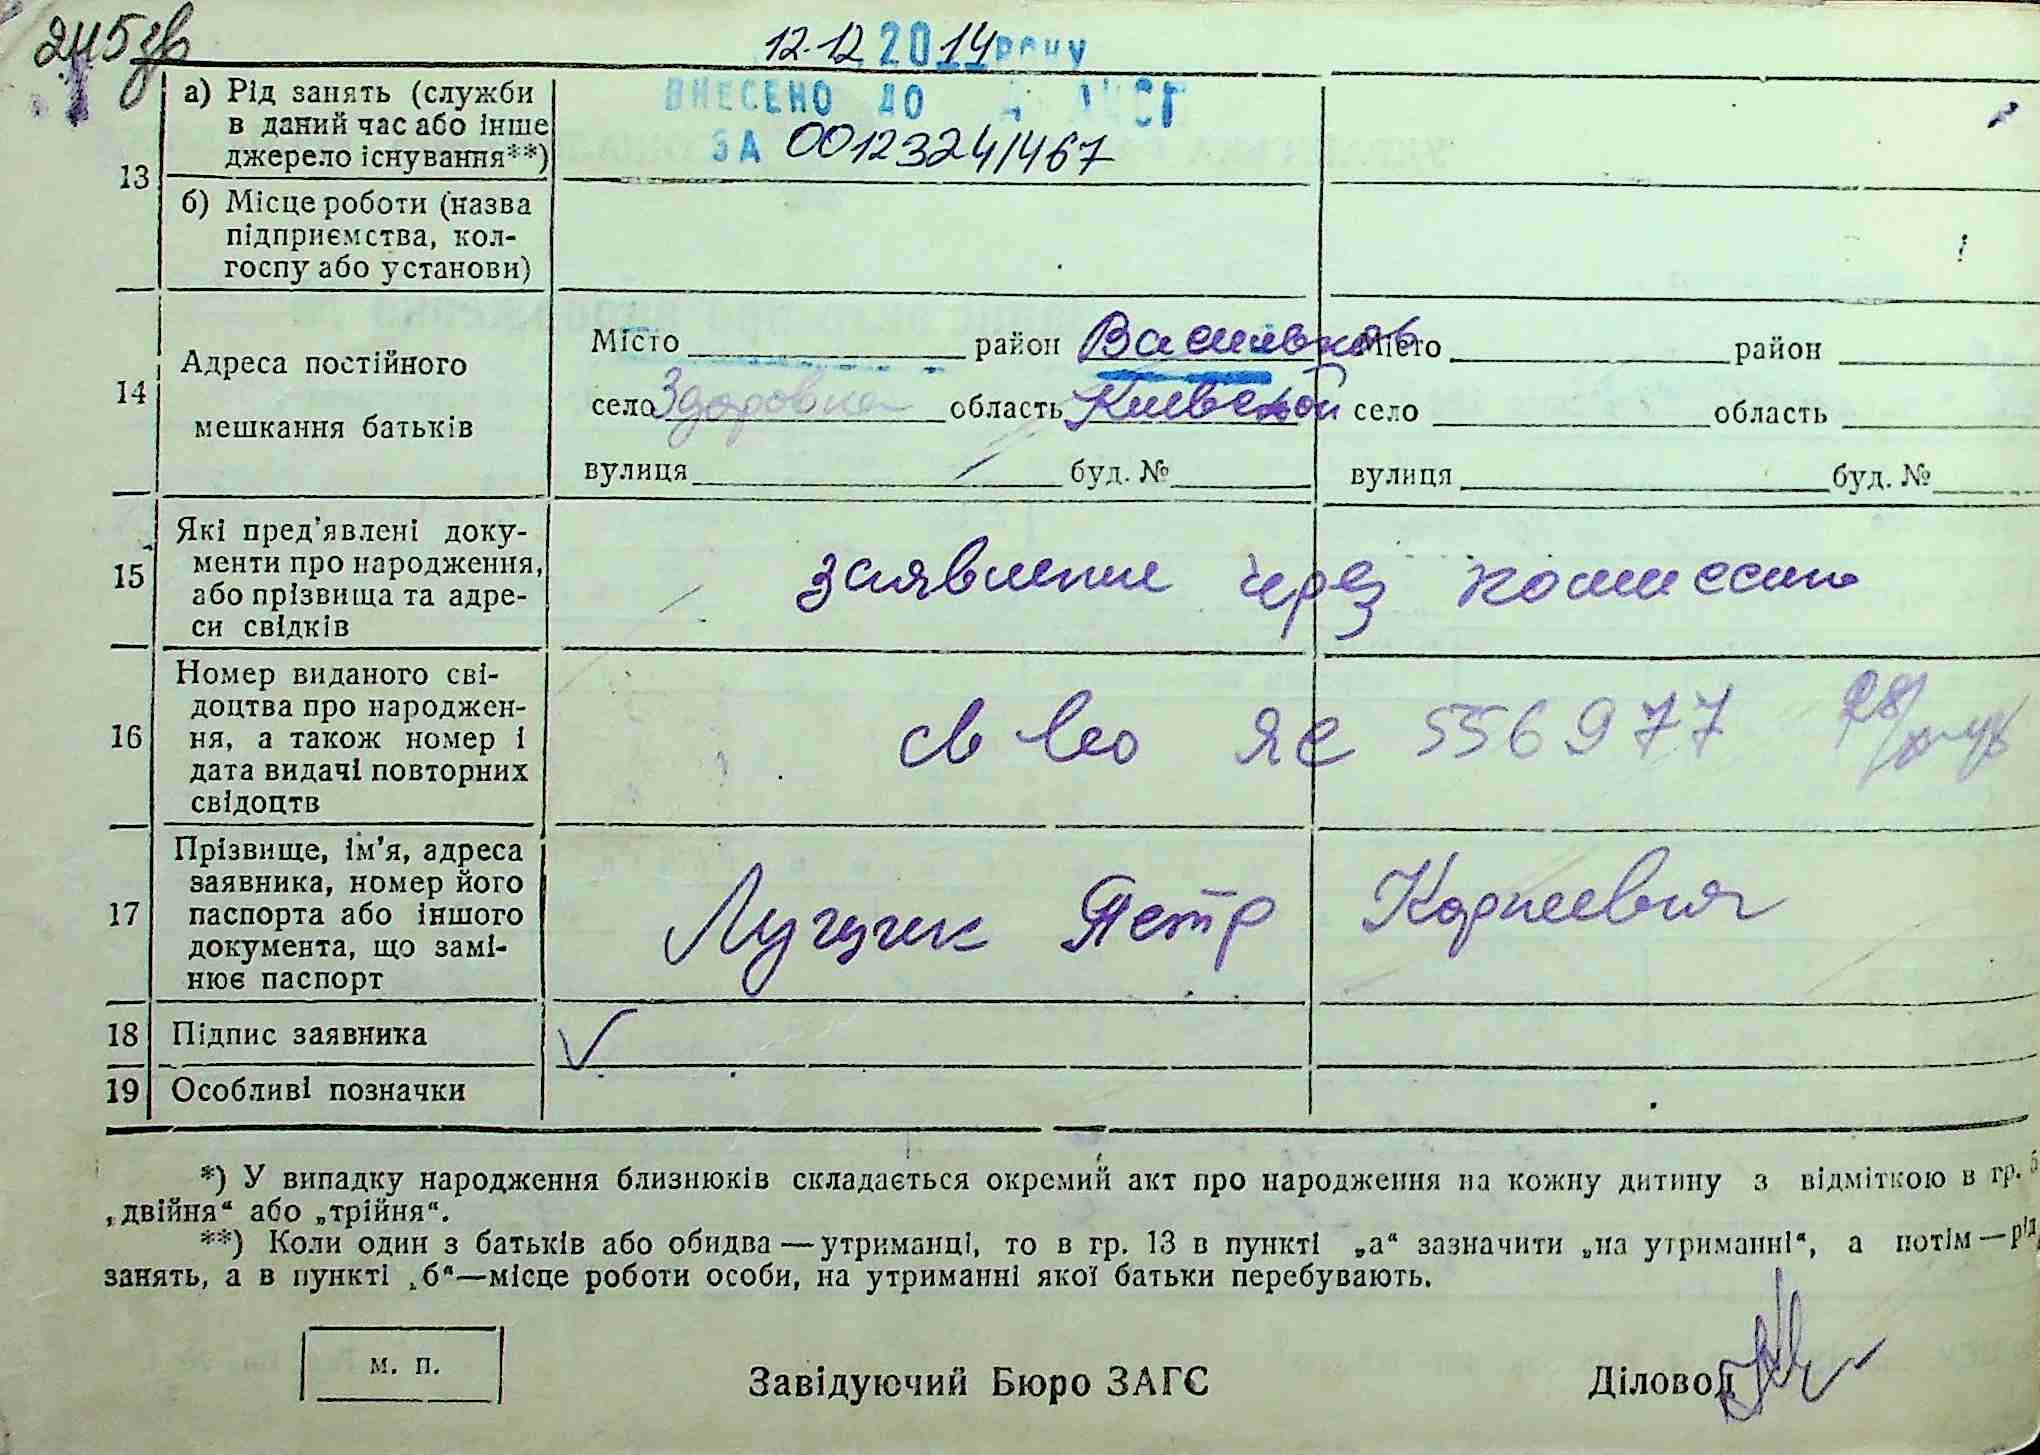 245зв
12.12.2014 року
ВНЕСЕНО ДО
ЗА 00123241467
13
а) Рід занять (служби
в даний час або інше
джерело існування**)
б) Місце роботи (назва
підприємства, кол-
госпу або установи)
14
Адреса постійного
мешкання батьків
Місто район Васильков
село Здоровка область Киевской
вулиця буд. №
Місто район
село область
вулиця буд. №
15
Які пред'явлені доку-
менти про народження,
або прізвища та адре-
си свідків
заявление через комиссию
16
Номер виданого сві-
доцтва про народжен-
ня, а також номер і
дата видачі повторних
свідоцтв
св во ЯЄ 556977
17
Прізвище, ім'я, адреса
заявника, номер його
паспорта або іншого
документа, що замі-
нює паспорт
Петр Корнеевич
18
Підпис заявника
19
Особливі позначки
*) У випадку народження близнюків складається окремий акт про народження на кожну дитину з відміткою в гр.
„двійня“ або „трійня“.
**) Коли один з батьків або обидва — утриманці, то в гр. 13 в пункті „а“ зазначити „на утриманні“, а потім — рід
занять, а в пункті „б“ — місце роботи особи, на утриманні якої батьки перебувають.
м. п.
Завідуючий Бюро ЗАГС
Діловод